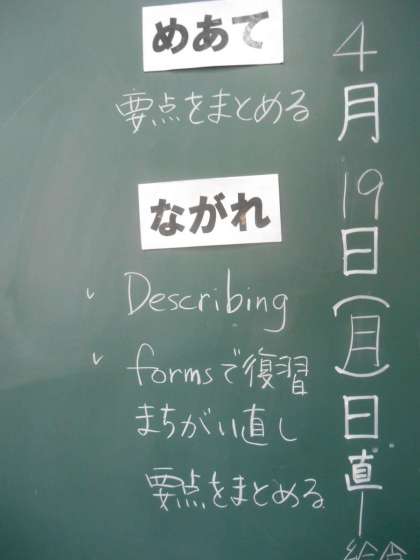 4月19日(月)日直
めあて
要点をまとめる
ながれ
✓ Describing
✓ formsで復習
まちがい直し
要点をまとめる